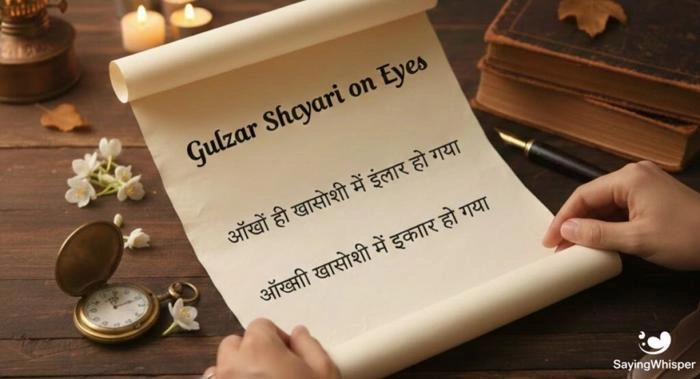 Gulzar Shcyari on Eyes
ऑखों ही खासोशी में इंलार हो गया
ऑख्माी खासोशी में इकाार हो गया
SayingWhisper